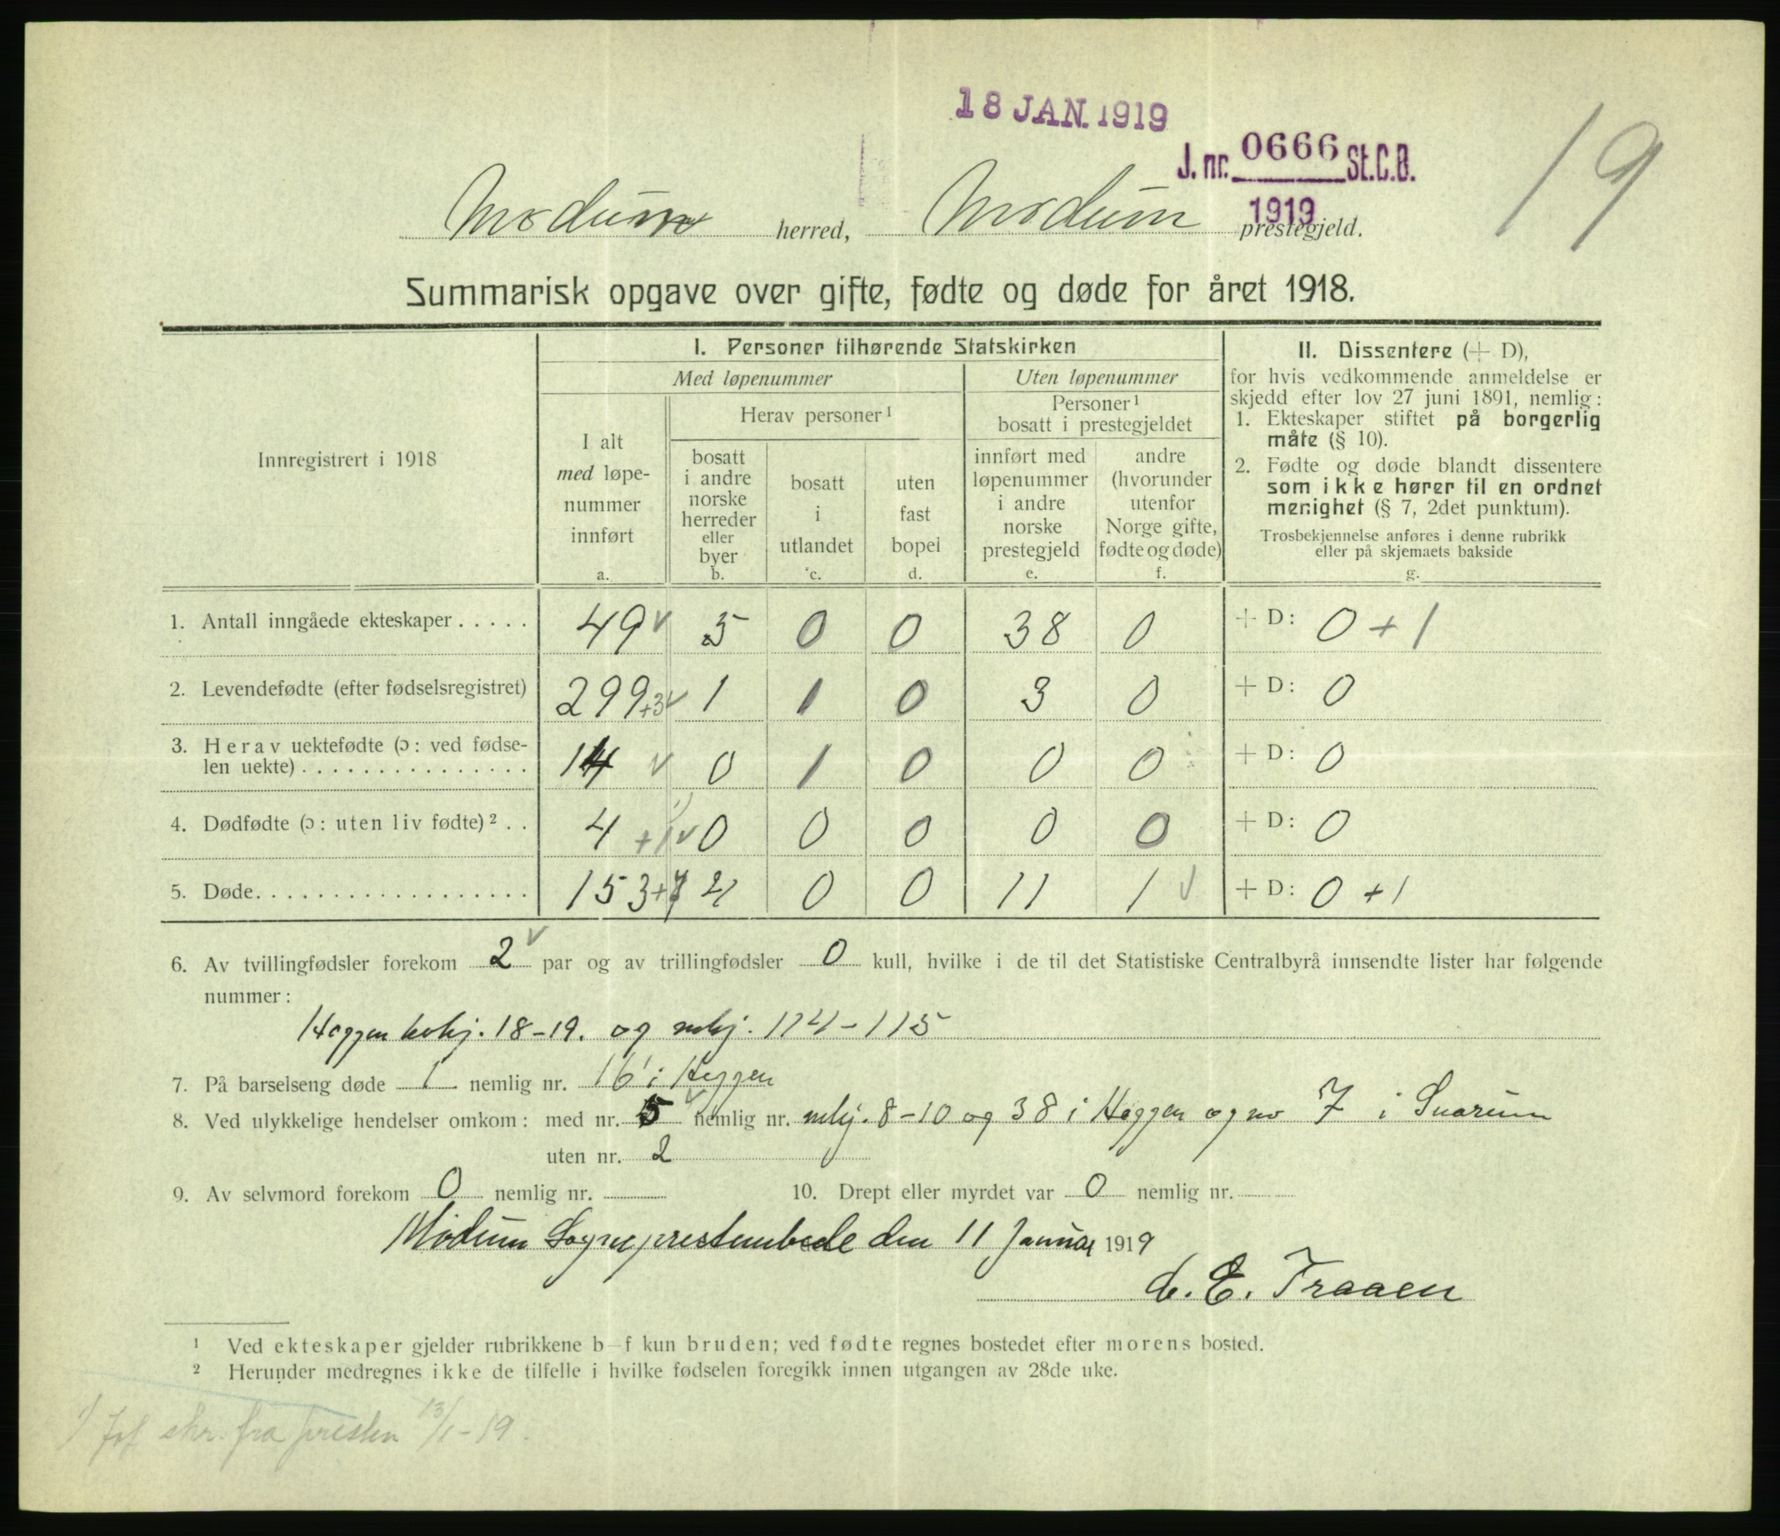 18 JAN. 1919
J. nr. 0666 St.C.B.
1919
19
Modum herred, Modum prestegjeld.
Summarisk opgave over gifte, fødte og døde for året 1918.
Innregistrert i 1918
I. Personer tilhørende Statskirken
Med løpenummer
Uten løpenummer
I alt
med løpe-
nummer
innført
a.
Herav personer ¹
bosatt
i andre
norske
herreder
eller
byer
b.
bosatt
i
utlandet
c.
uten
fast
bopel
d.
Personer ¹
bosatt i prestegjeldet
innført med
løpenummer
i andre
norske
prestegjeld
e.
andre
(hvorunder
utenfor
Norge gifte,
fødte og døde)
f.
II. Dissentere (+ D),
for hvis vedkommende anmeldelse er
skjedd efter lov 27 juni 1891, nemlig:
1. Ekteskaper stiftet på borgerlig
måte (§ 10).
2. Fødte og døde blandt dissentere
som ikke hører til en ordnet
menighet (§ 7, 2det punktum).
Trosbekjennelse anføres i denne rubrikk
eller på skjemaets bakside
g.
1. Antall inngåede ekteskaper . . . . . 49 5 0 0 38 0 + D: 0 + 1
2. Levendefødte (efter fødselsregistret) 299 +3 1 1 0 3 0 + D: 0
3. Herav uektefødte (ɔ: ved fødse-
len uekte) . . . . . . . . . . . . . . . 14 0 1 0 0 0 + D: 0
4. Dødfødte (ɔ: uten liv fødte) ² . . 4 +1 0 0 0 0 0 + D: 0
5. Døde. . . . . . . . . . . . . . . . . . 153 + 4 0 0 11 1 + D: 0 + 1
6. Av tvillingfødsler forekom 2 par og av trillingfødsler 0 kull, hvilke i de til det Statistiske Centralbyrå innsendte lister har følgende
nummer:
Heggen kvkj. 18-19. og mkj. 114-115
7. På barselseng døde 1 nemlig nr. 16 i Heggen
8. Ved ulykkelige hendelser omkom: med nr. 5 nemlig nr. mkj. 8-10 og 38 i Heggen og no 7 i Snarum
uten nr. 2
9. Av selvmord forekom 0 nemlig nr.
10. Drept eller myrdet var 0 nemlig nr.
Modum Sogneprestembede den 11 Januar 1919
C. E. Traaen
¹ Ved ekteskaper gjelder rubrikkene b—f kun bruden; ved fødte regnes bostedet efter morens bosted.
² Herunder medregnes ikke de tilfelle i hvilke fødselen foregikk innen utgangen av 28de uke.
1) Jof skr. fra presten 13/1-19.